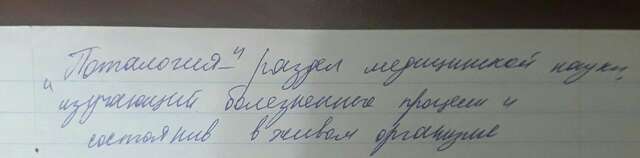 "Поталогия-" раздел медицинской науки,
изучающий болезненные процессы и
состояния в живом организме